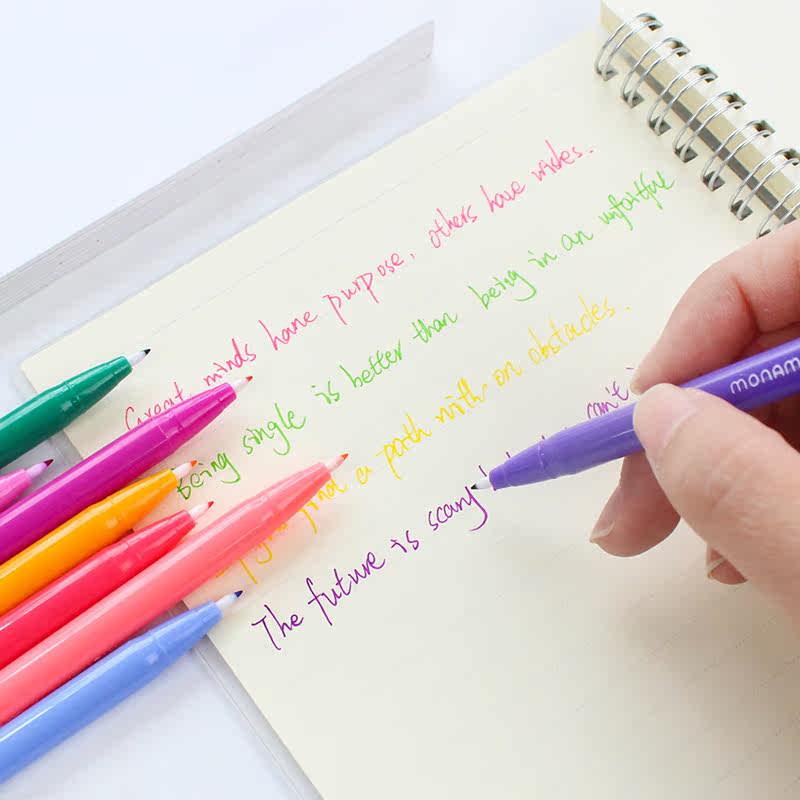 Great minds have purpose, others have wishes.
Being single is better than being in an unfaithful
find a path with on obstacles.
The future is scary but can't
MONAM